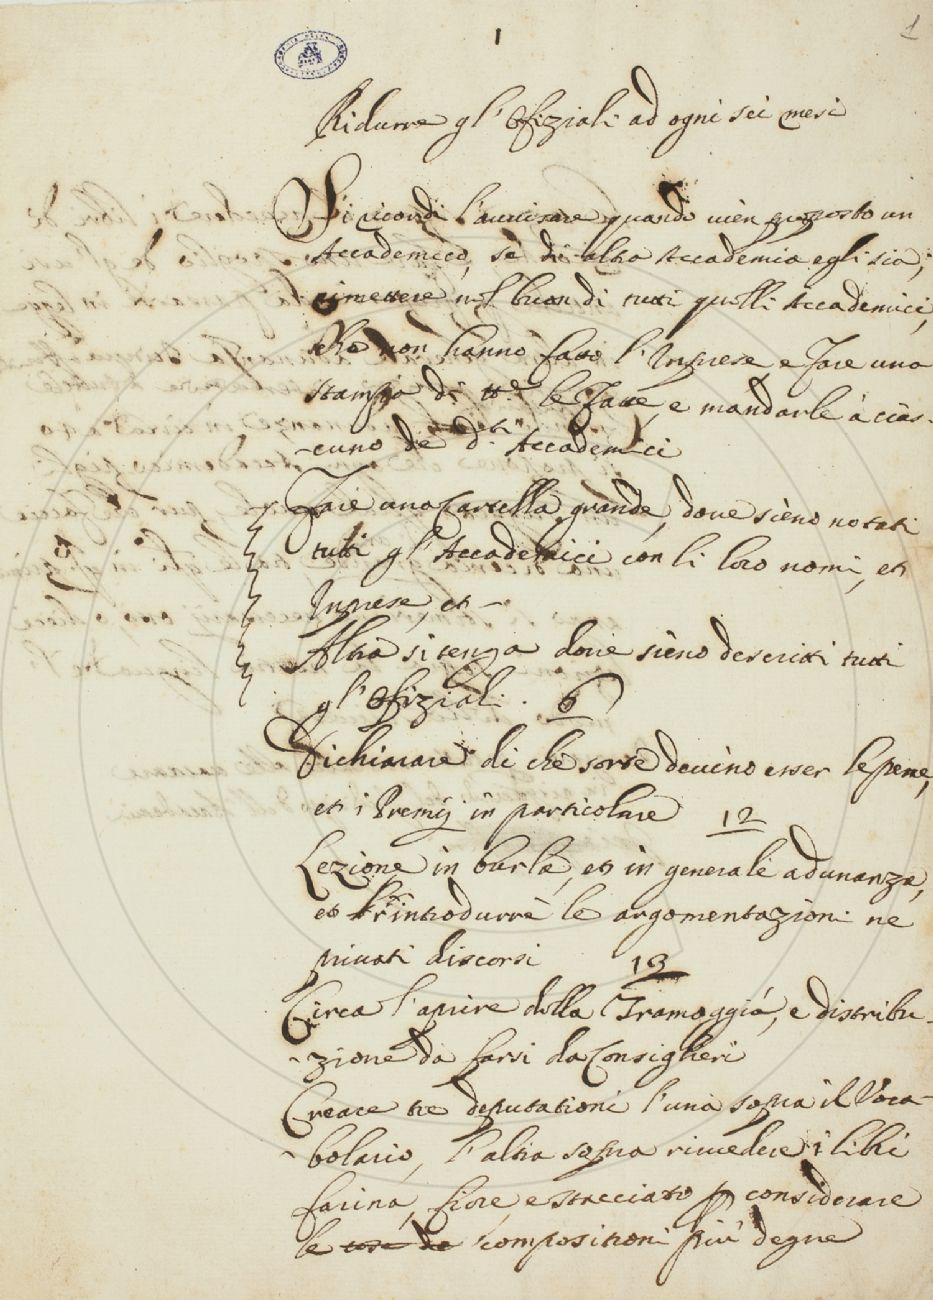 1
1
Ridurre gl'Ofiziali ad ogni sei mesi
Si ricordi l'auuisare quando uien proposto un
Accademico, se di altra Accademia egli sia;
rimettere nel buon dì tutti quelli Accademici,
che non hanno fatto l'Impresa e fare una
stampa di tt.e le e mandarle à cias-
-cuno de d.ti Accademici
Fare una Cartella grande, doue sieno notati
tutti gl'Accademici con li loro nomi, et
Imprese, et –
Altra si tenga doue sieno descritti tutti
gl'Ofiziali. 6
Dichiarare di che sorte deuino esser le pene,
et i Premij in particolare 12
Lezione in burla, et in generale adunanza,
et introdurre le argomentazioni ne
priuati discorsi 13
Circa l'aprire della Tramoggia, e distribu-
-zione da farsi da Consiglieri
Creare tre deputationi l'una sopra il Voca-
-bolario, l'altra sopra riuedere i libri
farina, fiore, e stacciato p considerare
le cose de compositioni più degne